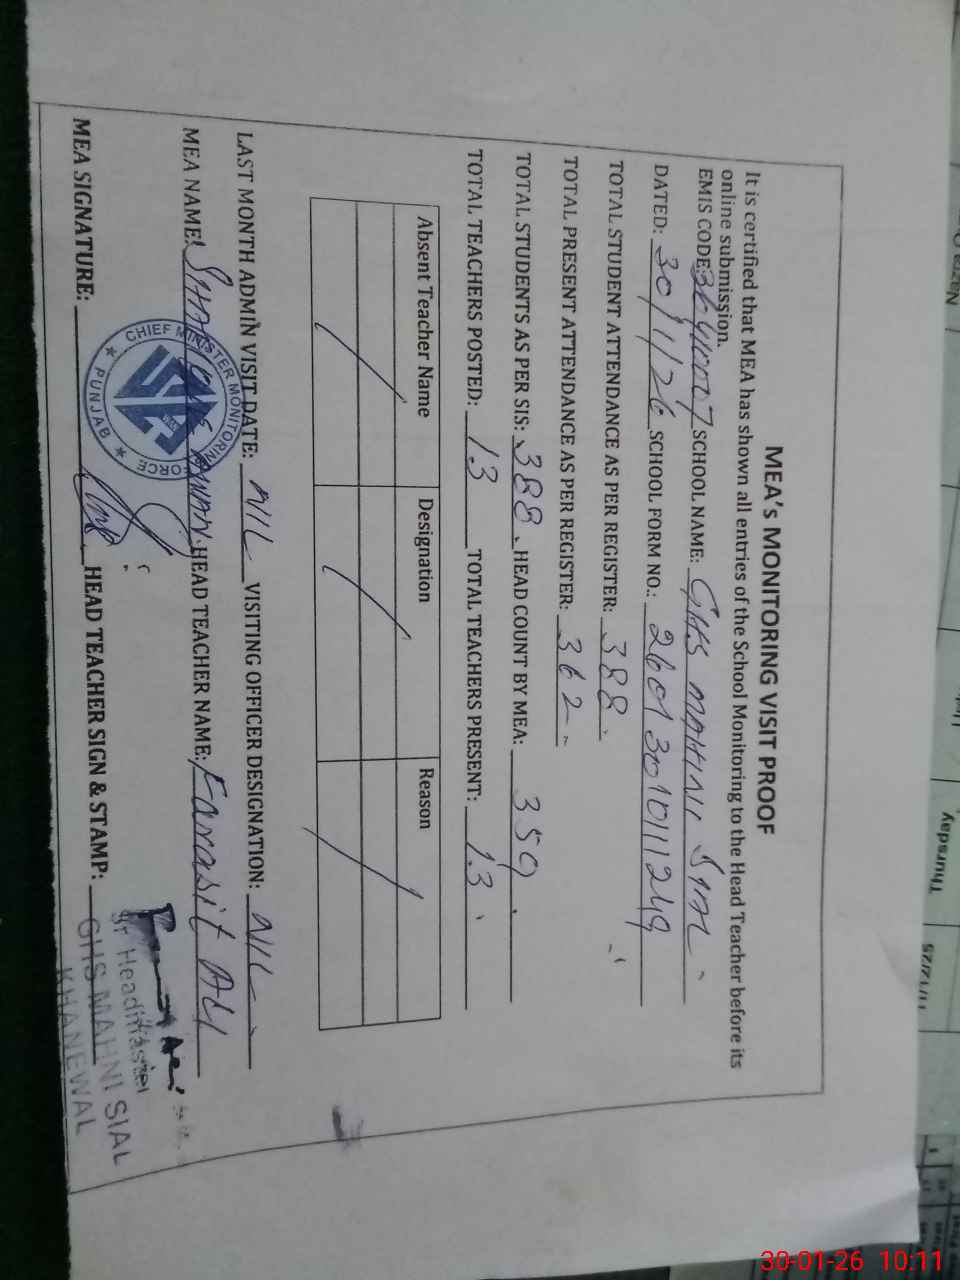 MEA's MONITORING VISIT PROOF
It is certified that MEA has shown all entries of the School Monitoring to the Head Teacher before its
online submission.
EMIS CODE: 36410007 SCHOOL NAME: GHS MAHNI SIAL
DATED: 30/1/26 SCHOOL FORM NO.: 2601301011249
TOTAL STUDENT ATTENDANCE AS PER REGISTER: 388
TOTAL PRESENT ATTENDANCE AS PER REGISTER: 362
TOTAL STUDENTS AS PER SIS: 388 HEAD COUNT BY MEA: 359
TOTAL TEACHERS POSTED: 13 TOTAL TEACHERS PRESENT: 13
Absent Teacher Name Designation Reason
LAST MONTH ADMIN VISIT DATE: NIL VISITING OFFICER DESIGNATION: NIL
MEA NAME: AWAN HEAD TEACHER NAME: ALI
MEA SIGNATURE: HEAD TEACHER SIGN & STAMP:
CHIEF MINISTER MONITORING FORCE
PUNJAB
Sr. Headmaster
GHS MAHNI SIAL
KHANEWAL
Thursday
11/12/25
30-01-26 10:11